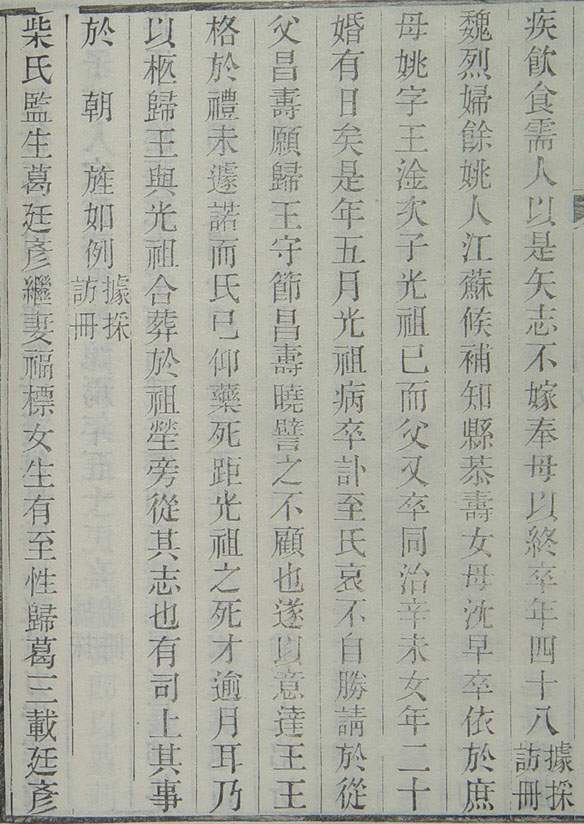 疾飲食需人以是矢志不嫁奉母以終卒年四十八據採訪冊
魏烈婦餘姚人江蘇候補知縣恭壽女母沈早卒依於庶
母姚字王淦次子光祖已而父又卒同治辛未女年二十
婚有日矣是年五月光祖病卒訃至氏哀不自勝請於從
父昌壽願歸王守節昌壽曉譬之不顧也遂以意達王王
格於禮未遽諾而氏已仰藥死距光祖之死才逾月耳乃
以柩歸王與光祖合葬於祖塋旁從其志也有司上其事
於朝旌如例據採訪冊
柴氏監生葛廷彥繼妻福標女生有至性歸葛三載廷彥